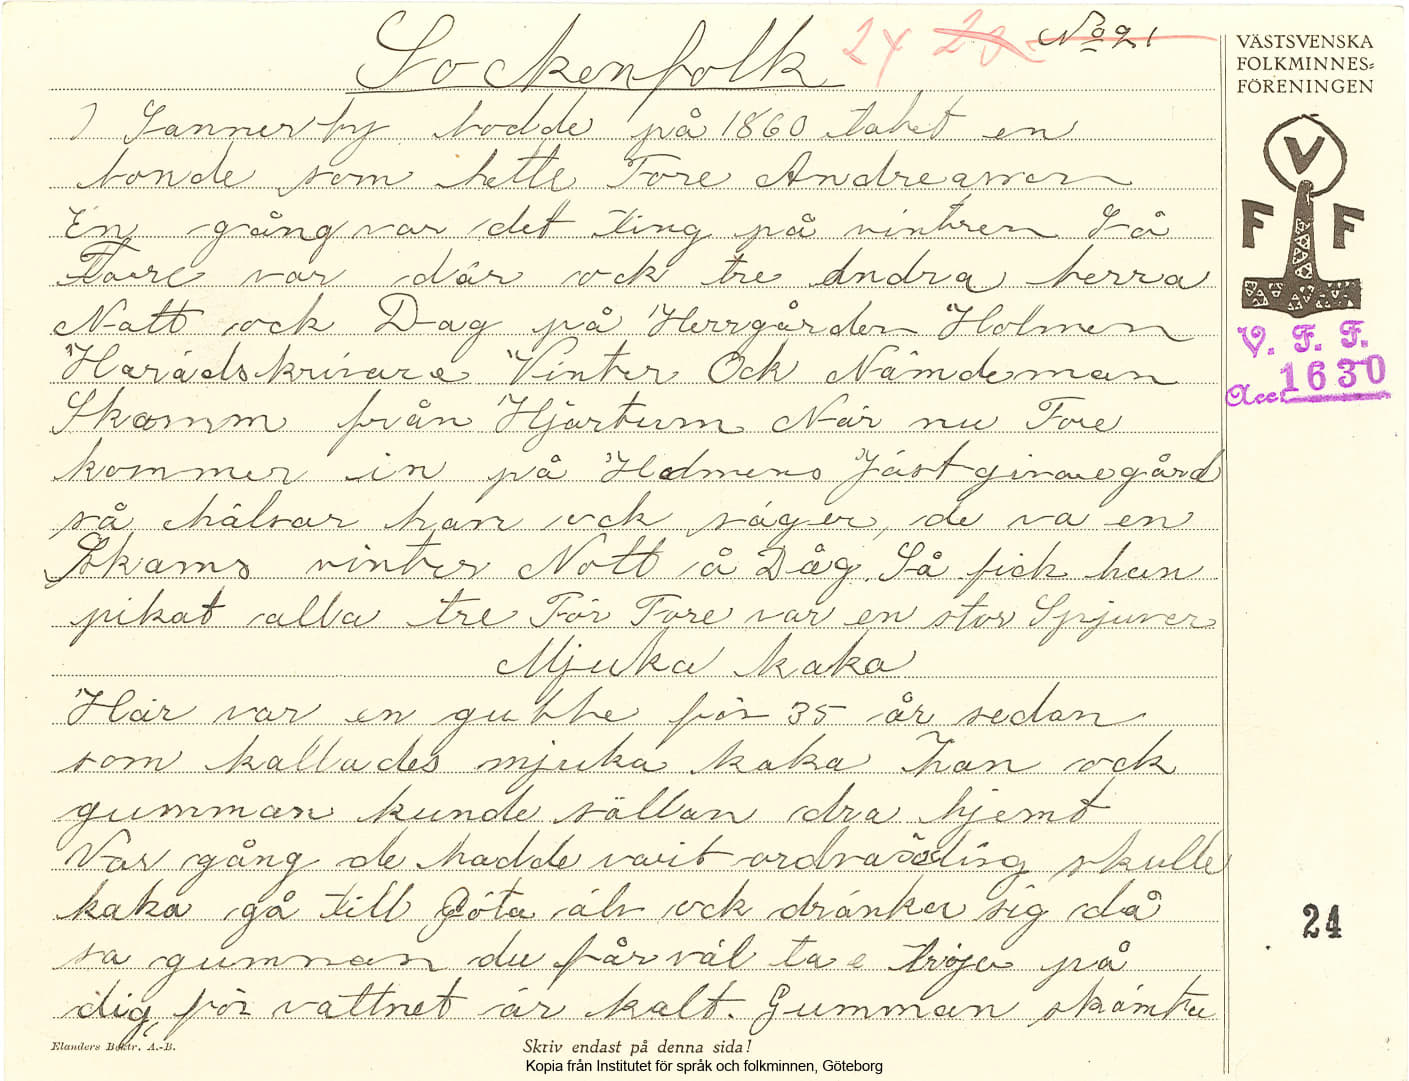 Sockenfolk
24 20 No 21
I Sannerby bodde på 1860 talet en
bonde som hette Tore Andreassen
En gång var det ting på vintren Så
Tore var där ock tre Andra herra
Natt ock Dag på Herrgården Holmen
Härådskrivare Vinter Ock Nämdeman
Skamm från Hjärtum När nu Tore
kommer in på Holmens Jästgivaregård
så hälsar han ock säger, de va en
Skams vinter Nott å Dåg. Så fick han
pikat alla tre För Tore var en stor Spjuver
Mjuka kaka
Här var en gubbe för 35 år sedan
som kallades mjuka kaka Han ock
gumman kunde sällan dra hjemt
Var gång de hadde varit skulle
kaka gå till Göta älv ock dränka sig då
sa gumman du får väl ta e tröja på
dig, för vattnet är kalt. Gumman skämta
VÄSTSVENSKA
FOLKMINNES=
FÖRENINGEN
V
F F
V. F. F.
Acc. 1630
24
Elanders Boktr. A.-B.
Skriv endast på denna sida!
Kopia från Institutet för språk och folkminnen, Göteborg